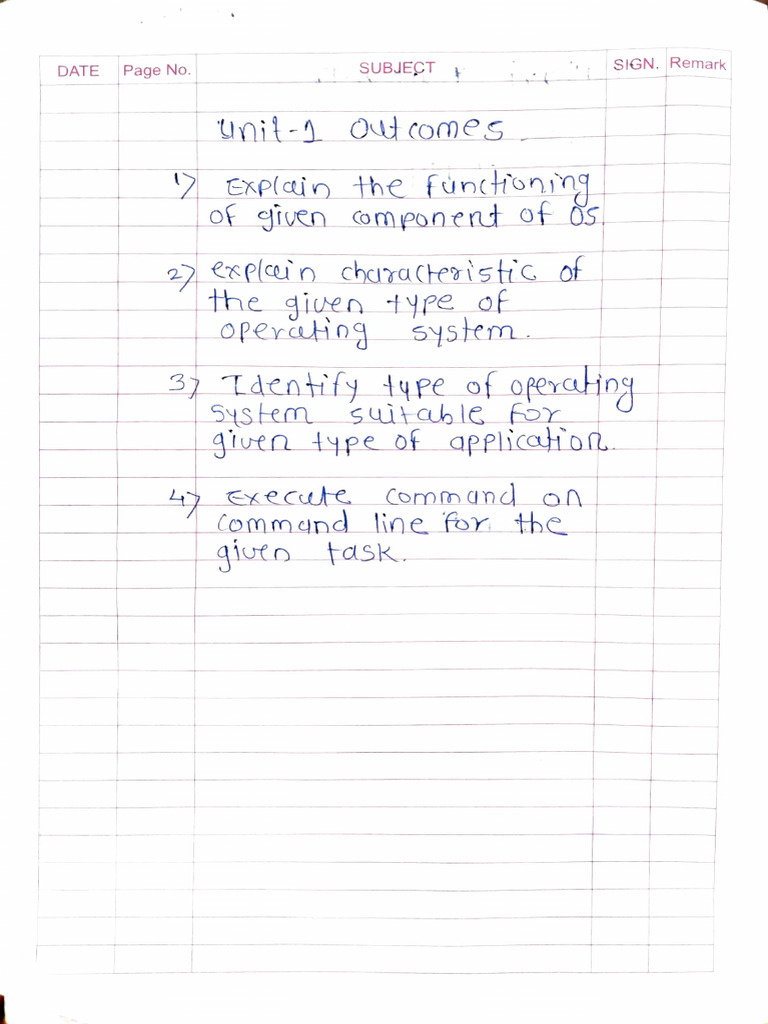 DATE Page No. SUBJECT SIGN. Remark
Unit-1 Outcomes
1) Explain the functioning
of given component of OS.
2) explain characteristic of
the given type of
operating system.
3) Identify type of operating
system suitable for
given type of application.
4) Execute command on
command line for the
given task.